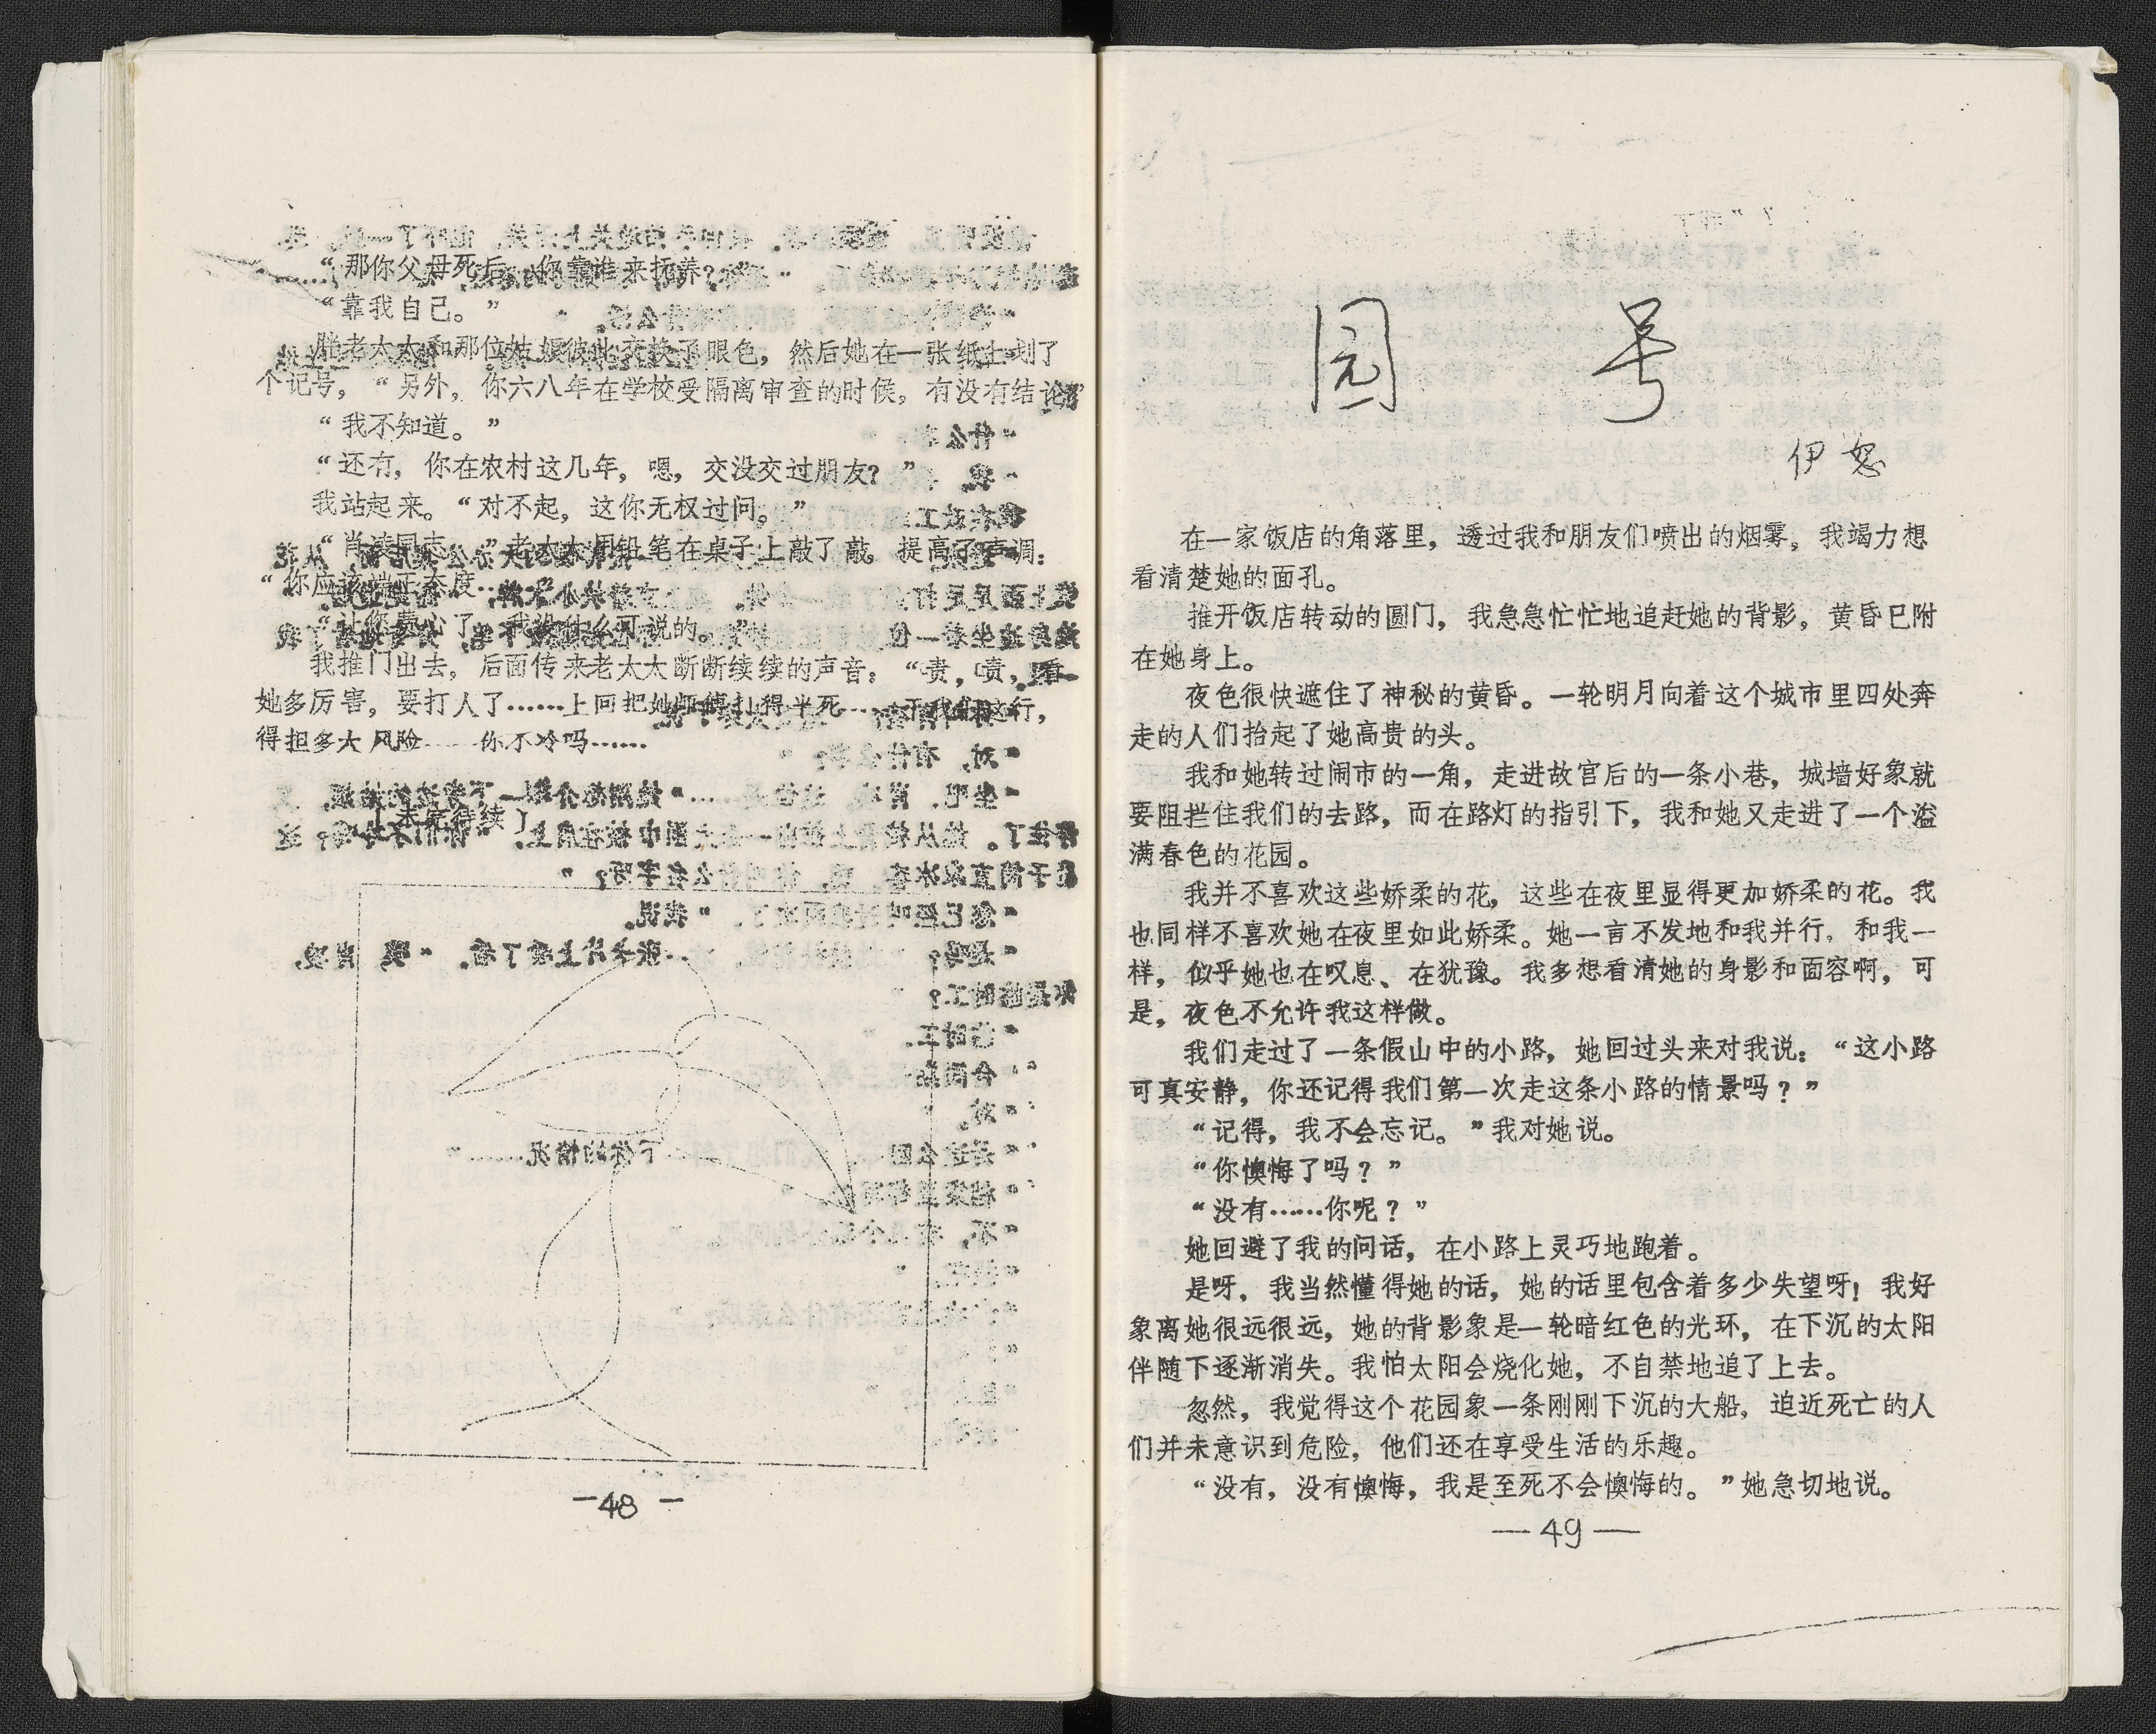 “那你父母死后，你靠谁来抚养？”
“靠我自己。”
胖老太太和那位姑娘彼此交换了眼色，然后她在一张纸上划了
个记号，“另外，你六八年在学校受隔离审查的时候，有没有结论？”
“我不知道。”
“还有，你在农村这几年，嗯，交没交过朋友？”
我站起来。“对不起，这你无权过问。”
“肖凌同志，”老太太用铅笔在桌子上敲了敲。提高了声调：
“你应该端正态度……
“让你费心了，我没什么可说的。”
我推门出去，后面传来老太太断断续续的声音：“责，啧，看
她多厉害，要打人了……上回把她师傅打得半死……干我们这行，
得担多大风险……你不冷吗……
未完待续
—48—
园 号
伊恕
在一家饭店的角落里，透过我和朋友们喷出的烟雾，我竭力想
看清楚她的面孔。
推开饭店转动的圆门，我急急忙忙地追赶她的背影，黄昏已附
在她身上。
夜色很快遮住了神秘的黄昏。一轮明月向着这个城市里四处奔
走的人们抬起了她高贵的头。
我和她转过闹市的一角，走进故宫后的一条小巷，城墙好象就
要阻拦住我们的去路，而在路灯的指引下，我和她又走进了一个溢
满春色的花园。
我并不喜欢这些娇柔的花，这些在夜里显得更加娇柔的花。我
也同样不喜欢她在夜里如此娇柔。她一言不发地和我并行，和我一
样，似乎她也在叹息、在犹豫。我多想看清她的身影和面容啊，可
是，夜色不允许我这样做。
我们走过了一条假山中的小路，她回过头来对我说：“这小路
可真安静，你还记得我们第一次走这条小路的情景吗？”
“记得，我不会忘记。”我对她说。
“你懊悔了吗？”
“没有……你呢？”
她回避了我的问话，在小路上灵巧地跑着。
是呀，我当然懂得她的话，她的话里包含着多少失望呀！我好
象离她很远很远，她的背影象是一轮暗红色的光环，在下沉的太阳
伴随下逐渐消失。我怕太阳会烧化她，不自禁地追了上去。
忽然，我觉得这个花园象一条刚刚下沉的大船，迫近死亡的人
们并未意识到危险，他们还在享受生活的乐趣。
“没有，没有懊悔，我是至死不会懊悔的。”她急切地说。
—49—